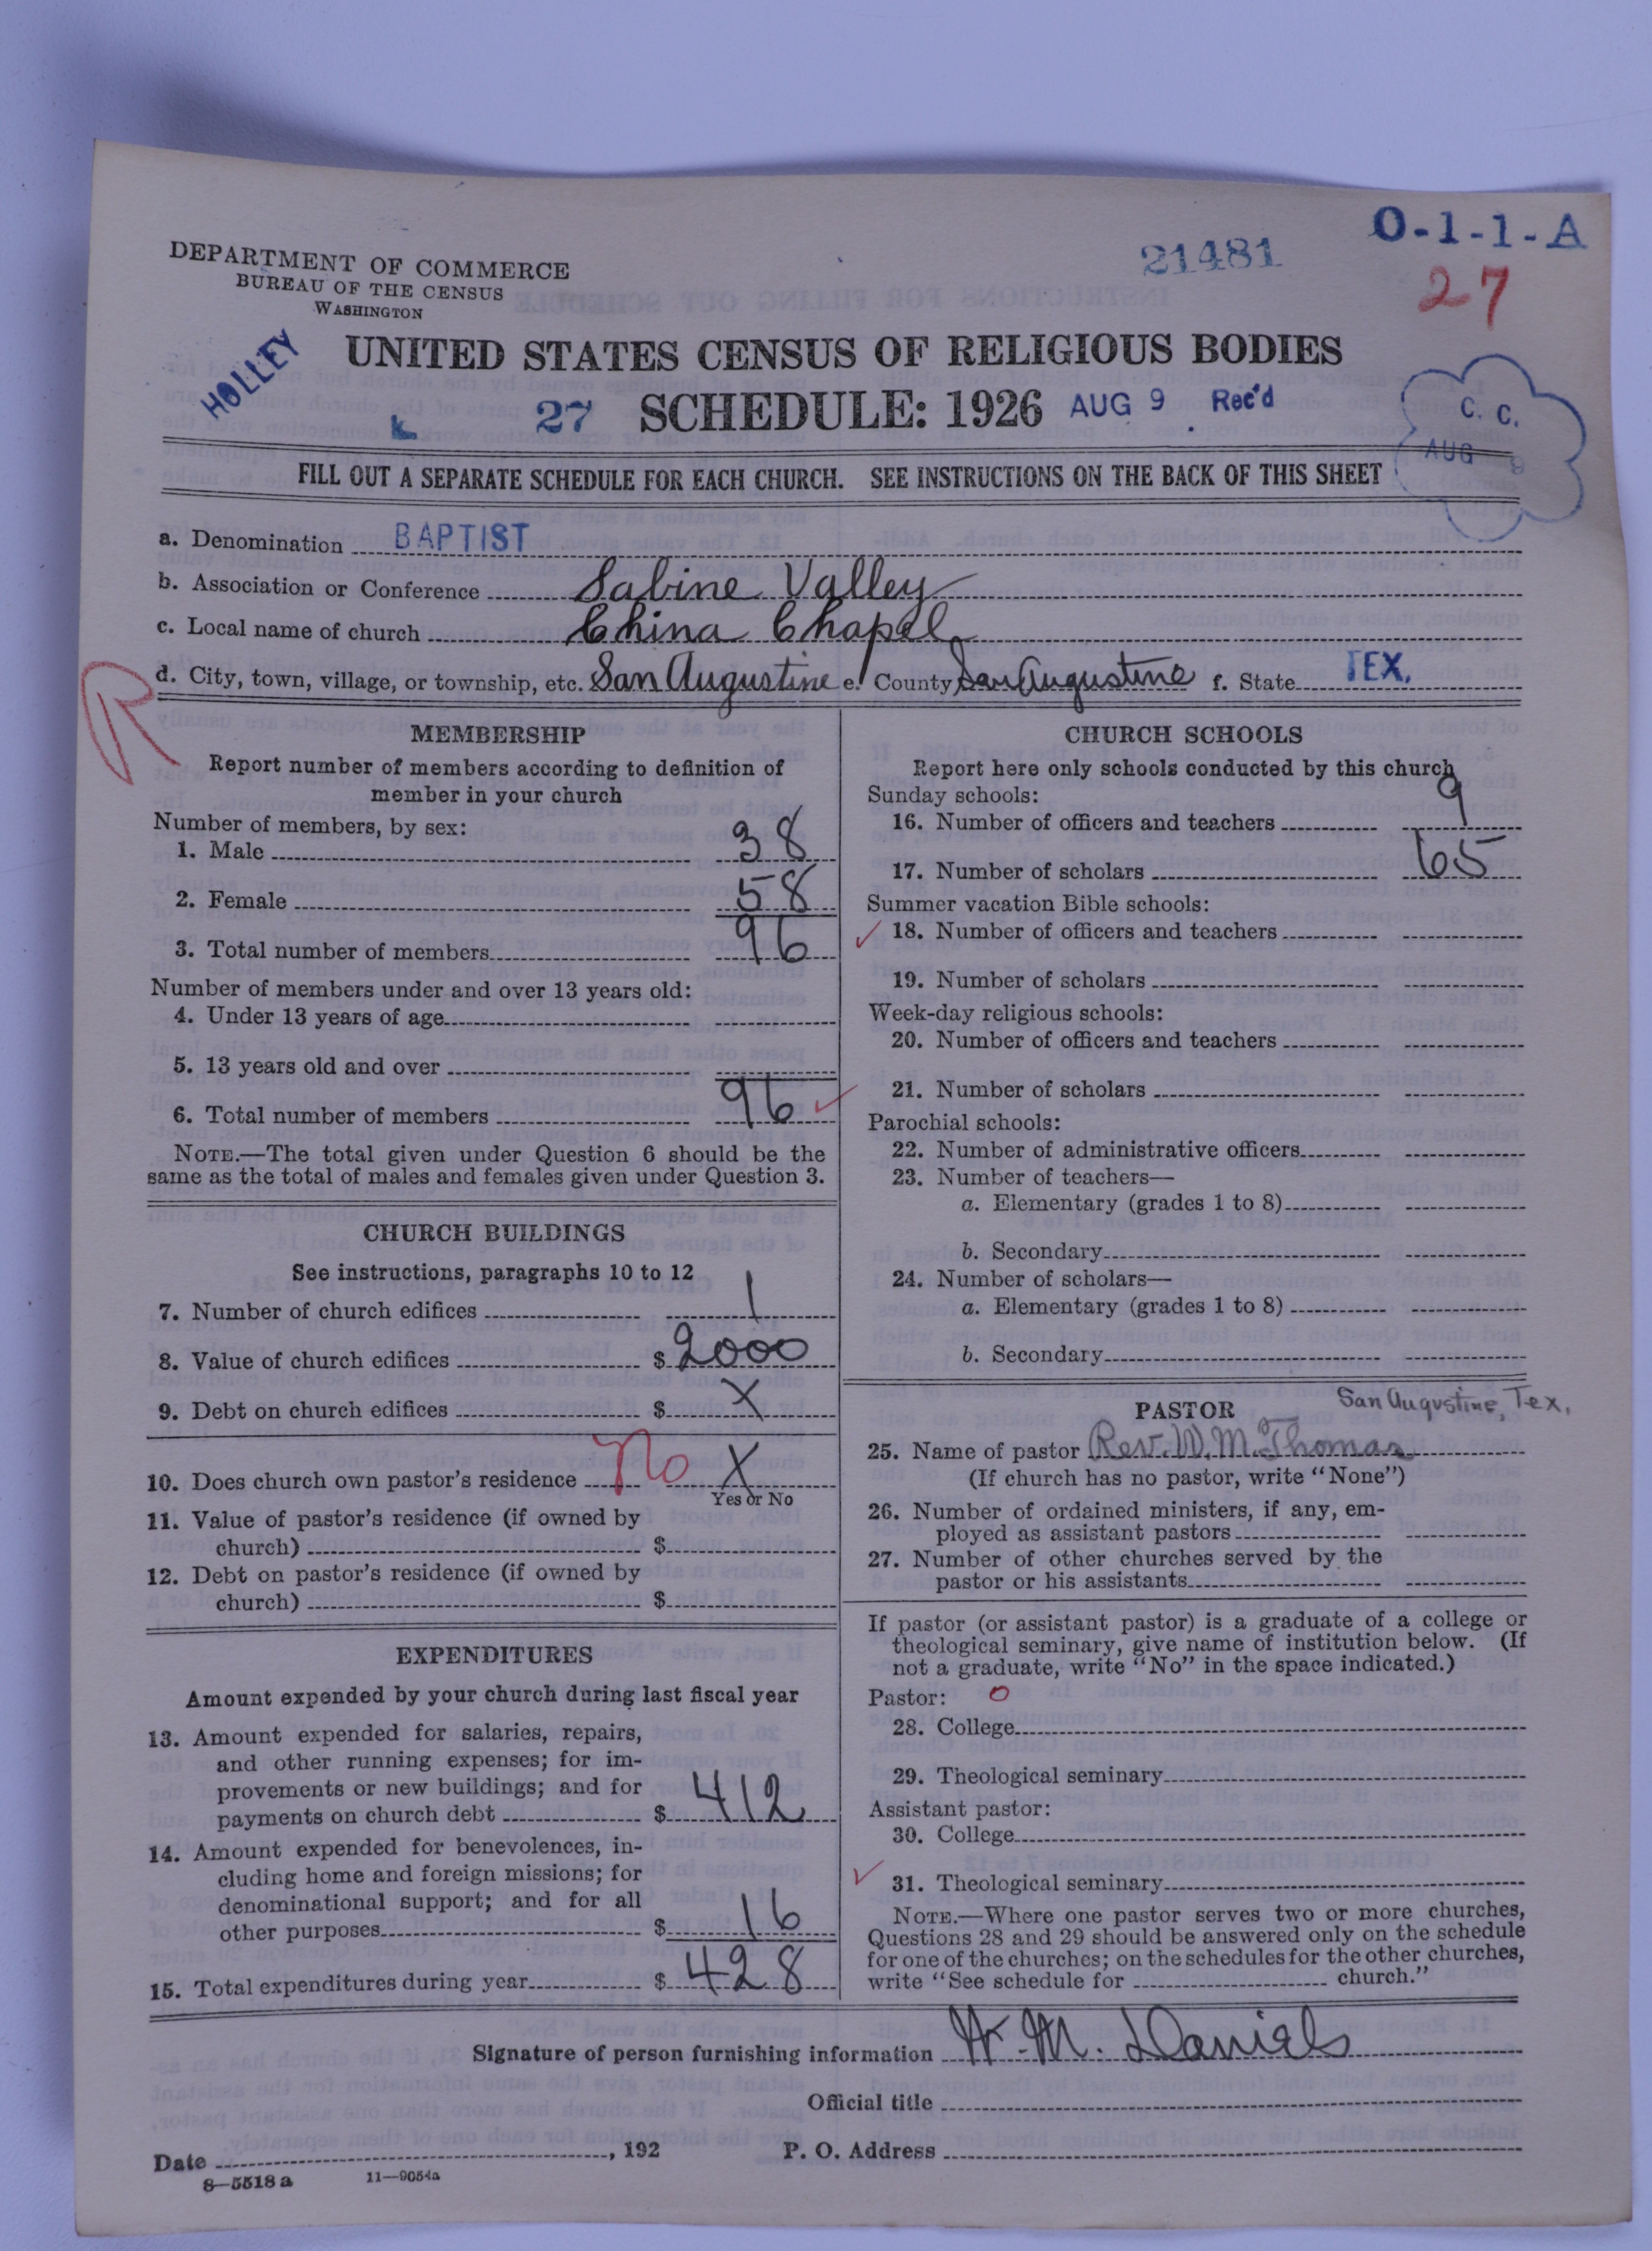 O-1-1-A
21481
27
DEPARTMENT OF COMMERCE
BUREAU OF THE CENSUS
WASHINGTON
HOLLEY
UNITED STATES CENSUS OF RELIGIOUS BODIES
27 SCHEDULE: 1926 AUG 9 Rec'd
C. C.
AUG 9
FILL OUT A SEPARATE SCHEDULE FOR EACH CHURCH. SEE INSTRUCTIONS ON THE BACK OF THIS SHEET
a. Denomination BAPTIST
b. Association or Conference Sabine Valley
c. Local name of church China Chapel
d. City, town, village, or township, etc. San Augustine e. County San Augustine f. State TEX.
R
MEMBERSHIP
Report number of members according to definition of
member in your church
Number of members, by sex:
1. Male 38
2. Female 58
3. Total number of members 96
Number of members under and over 13 years old:
4. Under 13 years of age
5. 13 years old and over
6. Total number of members 96
NOTE.—The total given under Question 6 should be the
same as the total of males and females given under Question 3.
CHURCH BUILDINGS
See instructions, paragraphs 10 to 12
7. Number of church edifices 1
8. Value of church edifices $ 2000
9. Debt on church edifices $ X
10. Does church own pastor's residence No X
Yes or No
11. Value of pastor's residence (if owned by
church) $
12. Debt on pastor's residence (if owned by
church) $
EXPENDITURES
Amount expended by your church during last fiscal year
13. Amount expended for salaries, repairs,
and other running expenses; for im-
provements or new buildings; and for
payments on church debt $ 412
14. Amount expended for benevolences, in-
cluding home and foreign missions; for
denominational support; and for all
other purposes $ 16
15. Total expenditures during year $ 428
CHURCH SCHOOLS
Report here only schools conducted by this church
Sunday schools:
16. Number of officers and teachers 9
17. Number of scholars 65
Summer vacation Bible schools:
18. Number of officers and teachers
19. Number of scholars
Week-day religious schools:
20. Number of officers and teachers
21. Number of scholars
Parochial schools:
22. Number of administrative officers
23. Number of teachers—
a. Elementary (grades 1 to 8)
b. Secondary
24. Number of scholars—
a. Elementary (grades 1 to 8)
b. Secondary
PASTOR San Augustine, Tex.
25. Name of pastor Rev. W. M. Thomas
(If church has no pastor, write "None")
26. Number of ordained ministers, if any, em-
ployed as assistant pastors
27. Number of other churches served by the
pastor or his assistants
If pastor (or assistant pastor) is a graduate of a college or
theological seminary, give name of institution below. (If
not a graduate, write "No" in the space indicated.)
Pastor: O
28. College
29. Theological seminary
Assistant pastor:
30. College
31. Theological seminary
NOTE.—Where one pastor serves two or more churches,
Questions 28 and 29 should be answered only on the schedule
for one of the churches; on the schedules for the other churches,
write "See schedule for church."
Signature of person furnishing information W. M. Daniels
Official title
Date , 192 P. O. Address
8—5518 a 11—9054a